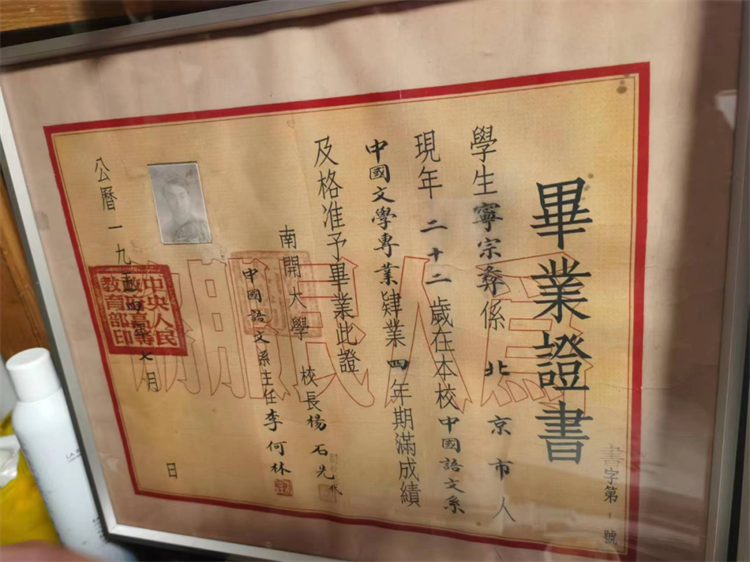 畢業證書
學生寧宗彝係北京市人
現年二十二歲在本校中國語文系
中國文學專業肄業四年期滿成績
及格准予畢業此證
南開大學 校長楊石先
中國語文系主任李何林
公曆一九五四年七月 日
中央人民政府教育部印
書字第 號
爲人民服務